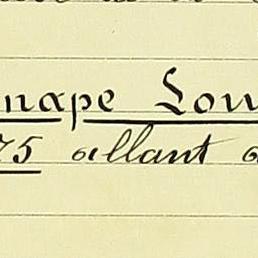 nape Lou
75 allant a